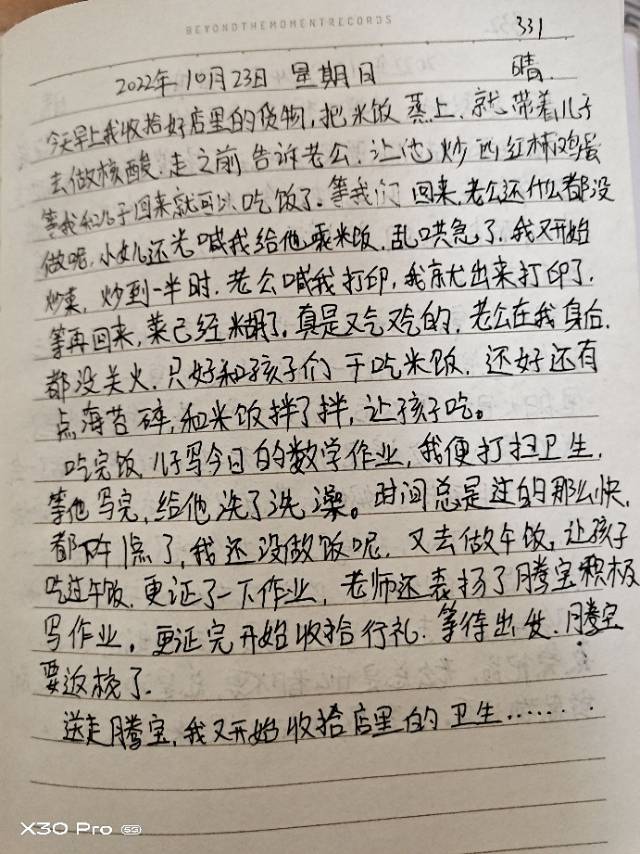 BEYONDTHEMOMENTRECORDS
331
2022年10月23日 星期日 晴
今天早上我收拾好店里的货物,把米饭蒸上,就带着儿子
去做核酸.走之前告诉老公,让他炒西红柿鸡蛋
等我和儿子回来就可以吃饭了.等我们回来,老公还什么都没
做呢.小女儿还光喊我给他乘米饭.乱哄急了.我又开始
炒菜,炒到一半时.老公喊我打印,我就出来打印了.
等再回来,菜已经糊了.真是又气又气的,老公在我身后.
都没关火.只好和孩子们干吃米饭.还好还有
点海苔碎,和米饭拌了拌,让孩子吃。
吃完饭,儿子写今日的数学作业,我便打扫卫生,
等他写完,给他洗了洗澡。时间总是过的那么快,
都下午1点了,我还没做饭呢,又去做午饭,让孩子
吃过午饭.更证了一下作业,老师还表扬了腾宝积极
写作业,更证完开始收拾行礼.等待出发.腾宝
要返校了.
送走腾宝,我又开始收拾店里的卫生.......
X30 Pro 5G